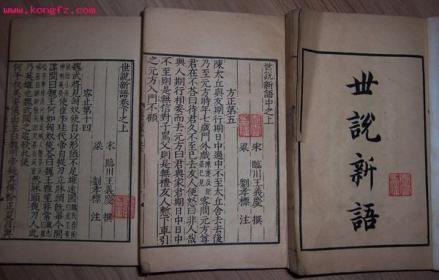 www.kongfz.com
世說新語
世說新語中之上
宋 臨川王義慶 撰
梁 劉孝標 注
方正第五
陳太丘與友期行期日中過中不至太丘舍去去後
乃至元方時年七歲門外戲 客問元方尊
君在不荅曰待君久不至已去友人便怒曰非人哉
與人期行相委而去元方曰君與家君期日中日中
不至則是無信對子罵父則是無禮友人慙下車引
之元方入門不顧
世說新語卷下之上
宋 臨川王義慶 撰
梁 劉孝標 注
容止第十四
魏武將見匈奴使自以形陋不足雄遠國
使崔季珪代帝自捉刀立牀頭既畢令間
諜問曰魏王何如匈奴使荅曰魏王雅望非常
然牀頭捉刀人此
乃英雄也魏武聞之追殺此使
何平叔美姿儀面至白魏明帝疑其傅粉正夏月